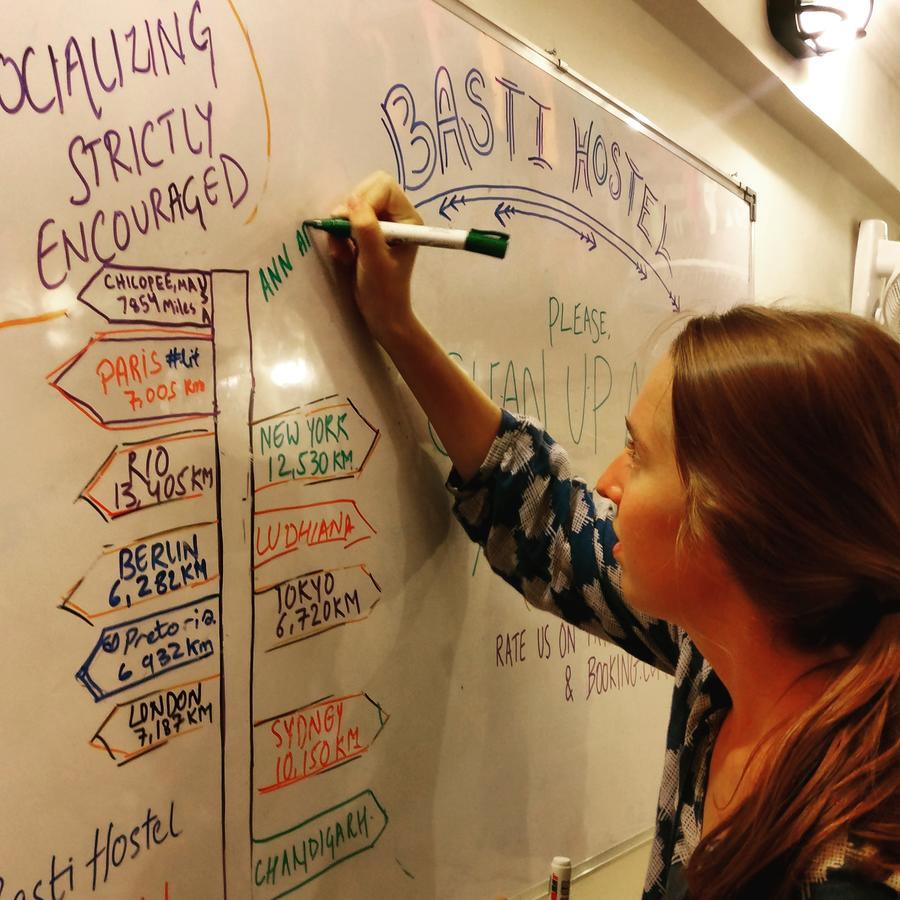 SOCIALIZING
STRICTLY
ENCOURAGED
BASTI HOSTEL
ANN
CHICOPEE, MA
7854 Miles
PARIS #lit
7,005 Km
RIO
13,405 KM
BERLIN
6,282KM
@Pretoria
6 932KM
LONDON
7,187KM
NEW YORK
12,530 KM
LUDHIANA
TOKYO
6,720KM
SYDNGY
10,150KM
CHANDIGARH
PLEASE,
CLEAN UP
RATE US ON
& BOOKING.CO
Basti Hostel